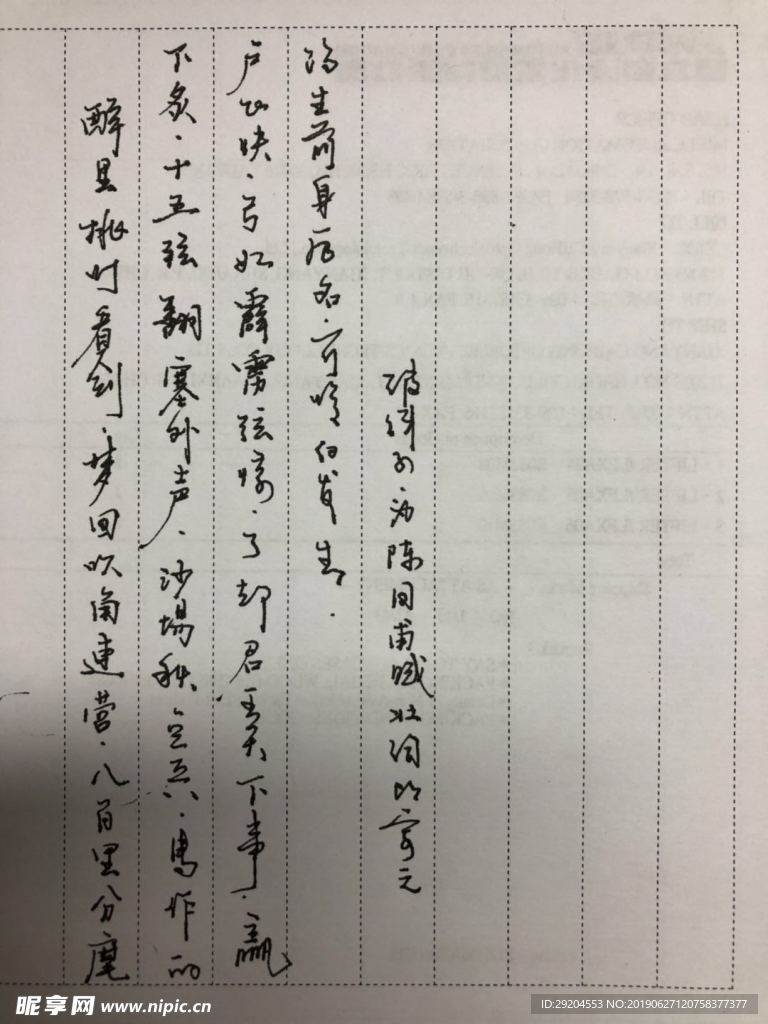 醉里挑灯看剑．梦回吹角連营．八百里分麾
下炙．十五弦翻塞外声．沙場秋点兵．馬作的
卢飞快弓如霹雳弦惊．了却君王天下事．赢
得生前身后名．可怜白发生．
破阵子．为陈同甫赋壮词以寄之
昵享网 www.nipic.cn
ID:29204553 NO:20190627120758377377